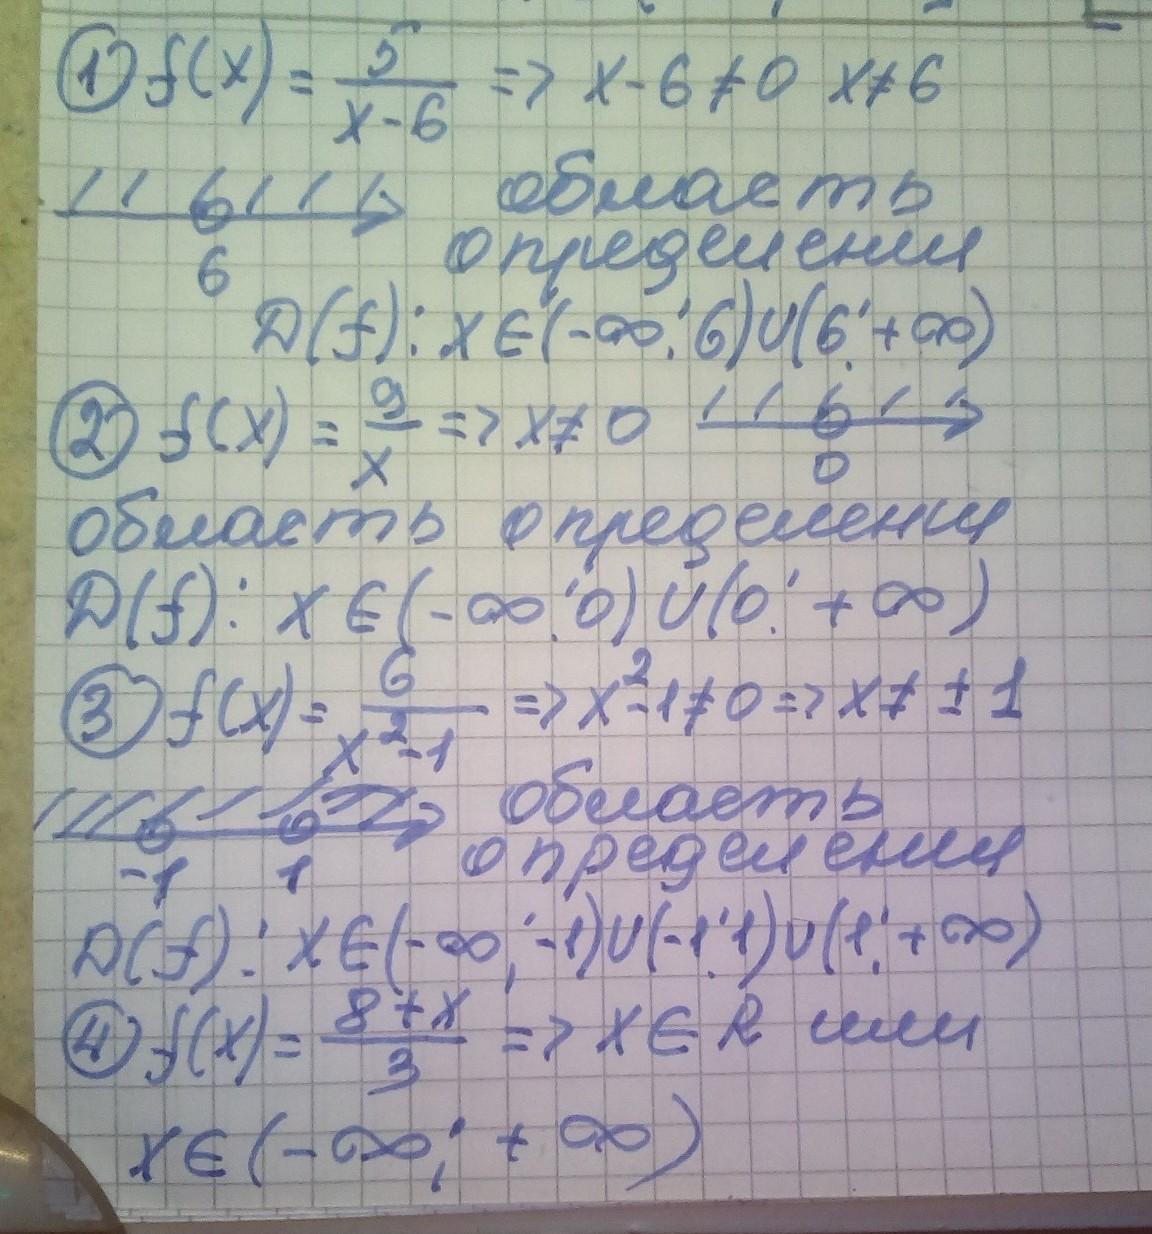 ① f(x) = 5/(x-6) => x-6≠0 x≠6
область
6 определении
D(f): x∈(-∞;6)∪(6;+∞)
② f(x) = 9/x => x≠0
0
область определении
D(f): x∈(-∞;0)∪(0;+∞)
③ f(x) = 6/(x²-1) => x²-1≠0 => x≠±1
область
-1 1 определении
D(f): x∈(-∞;-1)∪(-1;1)∪(1;+∞)
④ f(x) = (8+x)/3 => x∈R или
x∈(-∞;+∞)